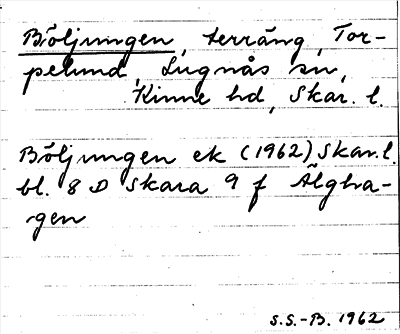 Böljungen, terräng, Tor-
pelund, Lugnås sn,
Kinne hd, Skar. l.
Böljungen ek (1962) Skar. l.
bl. 8 D Skara 9 f Älgha-
gen
S.S.-B. 1962